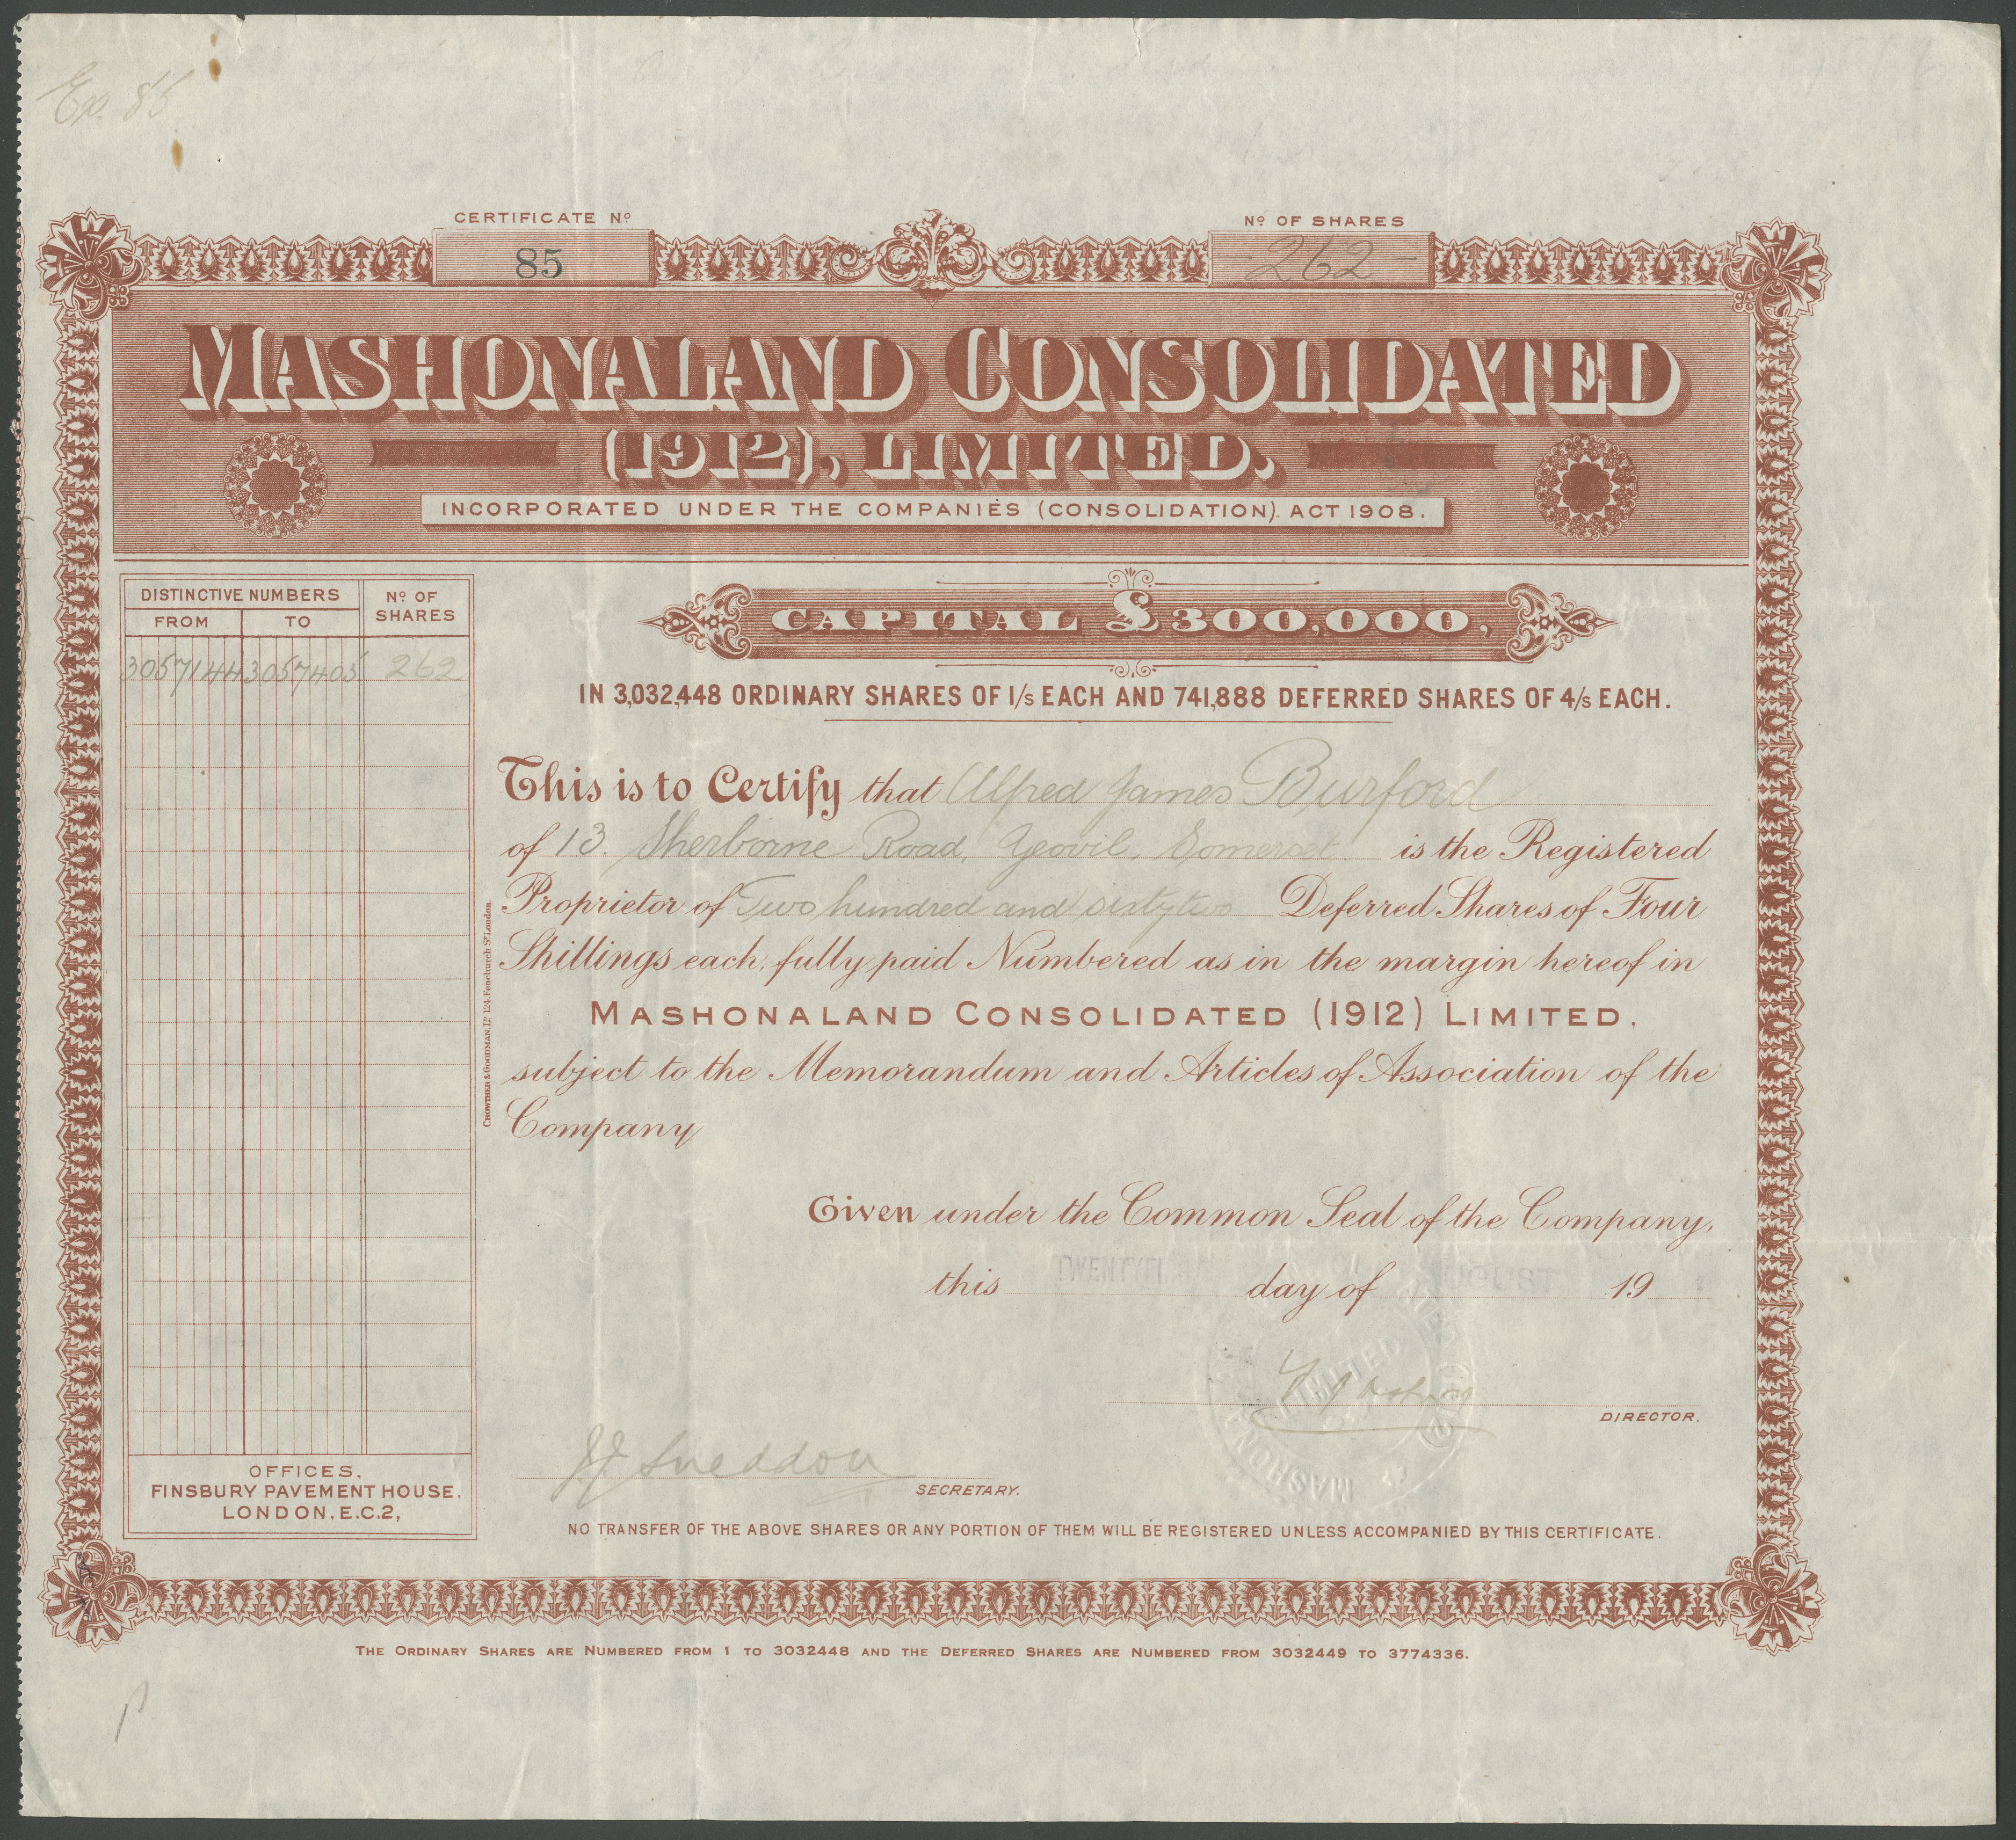 Ex. 85
CERTIFICATE Nº
85
Nº OF SHARES
- 262 -
MASHONALAND CONSOLIDATED
(1912), LIMITED.
INCORPORATED UNDER THE COMPANIES (CONSOLIDATION). ACT 1908.
DISTINCTIVE NUMBERS
FROM TO
Nº OF SHARES
3057144 3057405 262
CAPITAL £300,000,
IN 3,032,448 ORDINARY SHARES OF 1/s EACH AND 741,888 DEFERRED SHARES OF 4/s EACH.
This is to Certify that Alfred James Burford
of 13. Sherborne Road, Yeovil, Somerset is the Registered
Proprietor of Two hundred and sixty two Deferred Shares of Four
Shillings each, fully paid Numbered as in the margin hereof in
MASHONALAND CONSOLIDATED (1912) LIMITED.
subject to the Memorandum and Articles of Association of the
Company
CROWTHER & GOODMAN, Lᴰ 124, Fenchurch Sᵗ London.
Given under the Common Seal of the Company,
this day of AUGUST 19
LIMITED
MASHON
DIRECTOR.
Sneddon
SECRETARY.
OFFICES,
FINSBURY PAVEMENT HOUSE,
LONDON, E.C.2,
NO TRANSFER OF THE ABOVE SHARES OR ANY PORTION OF THEM WILL BE REGISTERED UNLESS ACCOMPANIED BY THIS CERTIFICATE.
THE ORDINARY SHARES ARE NUMBERED FROM 1 TO 3032448 AND THE DEFERRED SHARES ARE NUMBERED FROM 3032449 TO 3774336.